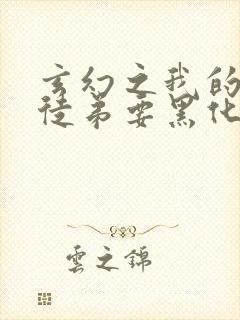 玄幻之我的
徒弟要黑化
雲之錦